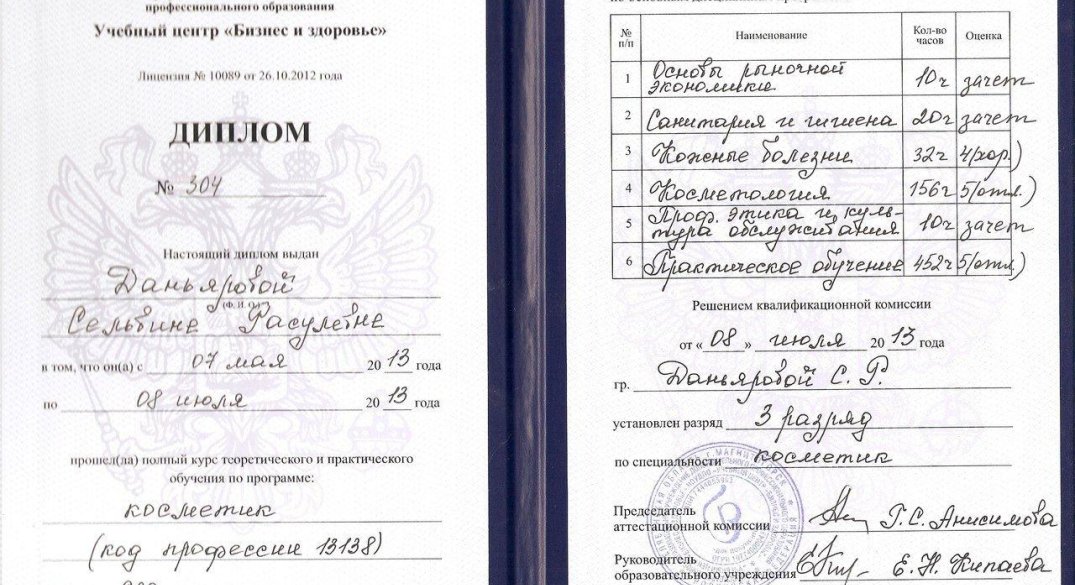 профессионального образования
Учебный центр «Бизнес и здоровье»
Лицензия № 10089 от 26.10.2012 года
ДИПЛОМ
№ 304
Настоящий диплом выдан
Даньяровой
(Ф. И. О.)
Сельвине Расулевне
в том, что он(а) с 07 мая 2013 года
по 08 июля 2013 года
прошел(ла) полный курс теоретического и практического
обучения по программе:
косметик
(код профессии 13138)
№ п/п Наименование Кол-во часов Оценка
1 Основы рыночной экономики 10ч зачет
2 Санитария и гигиена 20ч зачет
3 Кожные болезни 32ч 4(хор.)
4 Косметология 156ч 5(отл.)
5 Проф. этика и куль-
тура обслуживания 10ч зачет
6 Практическое обучение 452ч 5(отл.)
Решением квалификационной комиссии
от «08» июля 2013 года
гр. Даньяровой С. Р.
установлен разряд 3 разряд
по специальности косметик
Председатель
аттестационной комиссии Г.С. Анисимова
Руководитель
образовательного учреждения Е.Н. Кипаева